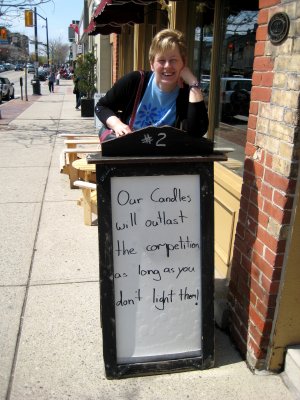 2
Our Candles
will outlast
the competition
as long as you
don't light them!